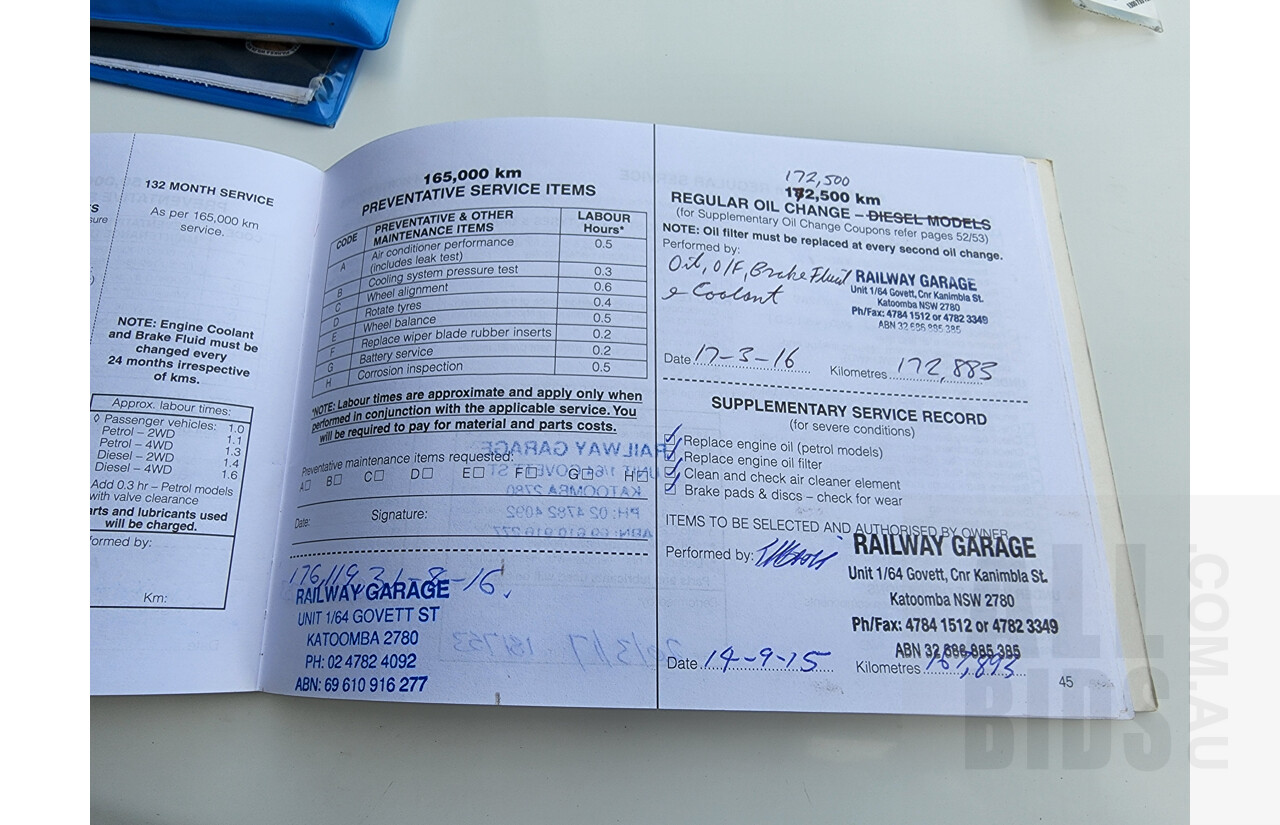 132 MONTH SERVICE
As per 165,000 km
service.
NOTE: Engine Coolant
and Brake Fluid must be
changed every
24 months irrespective
of kms.
Approx. labour times:
◊ Passenger vehicles: 1.0
Petrol – 2WD 1.1
Petrol – 4WD 1.3
Diesel – 2WD 1.4
Diesel – 4WD 1.6
Add 0.3 hr – Petrol models
with valve clearance
arts and lubricants used
will be charged.
formed by:
Km:
165,000 km
PREVENTATIVE SERVICE ITEMS
CODE PREVENTATIVE & OTHER MAINTENANCE ITEMS LABOUR Hours*
A Air conditioner performance (includes leak test) 0.5
B Cooling system pressure test 0.3
C Wheel alignment 0.6
D Rotate tyres 0.4
E Wheel balance 0.5
F Replace wiper blade rubber inserts 0.2
G Battery service 0.2
H Corrosion inspection 0.5
*NOTE: Labour times are approximate and apply only when
performed in conjunction with the applicable service. You
will be required to pay for material and parts costs.
Preventative maintenance items requested:
A□ B□ C□ D□ E□ F□ G□ H□
Date: Signature:
176,119 31-8-16.
RAILWAY GARAGE
UNIT 1/64 GOVETT ST
KATOOMBA 2780
PH: 02 4782 4092
ABN: 69 610 916 277
172,500
172,500 km
REGULAR OIL CHANGE – DIESEL MODELS
(for Supplementary Oil Change Coupons refer pages 52/53)
NOTE: Oil filter must be replaced at every second oil change.
Performed by:
Oil, O/F, Brake Fluid
& Coolant
RAILWAY GARAGE
Unit 1/64 Govett, Cnr Kanimbla St.
Katoomba NSW 2780
Ph/Fax: 4784 1512 or 4782 3349
ABN 32 686 895 385
Date 17-3-16 Kilometres 172,883
SUPPLEMENTARY SERVICE RECORD
(for severe conditions)
Replace engine oil (petrol models)
Replace engine oil filter
Clean and check air cleaner element
Brake pads & discs – check for wear
ITEMS TO BE SELECTED AND AUTHORISED BY OWNER
Performed by:
RAILWAY GARAGE
Unit 1/64 Govett, Cnr Kanimbla St.
Katoomba NSW 2780
Ph/Fax: 4784 1512 or 4782 3349
ABN 32 686 895 385
Date 14-9-15 Kilometres 167,893
45
ALL
BIDS
.COM.AU